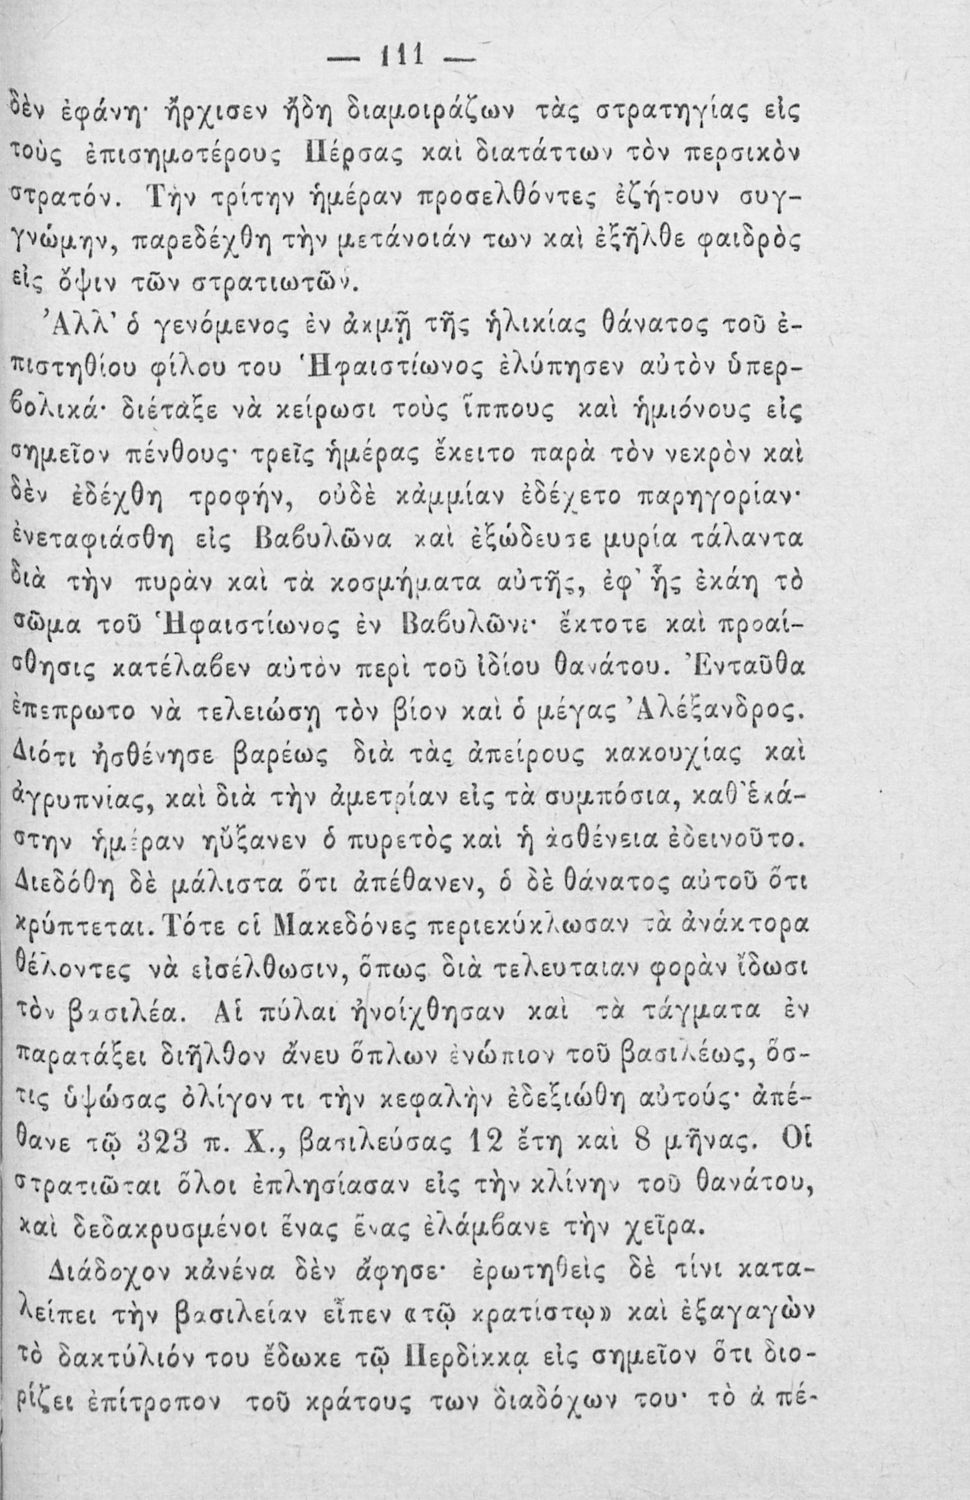 — 111 —
δὲν ἐφάνη· ἤρχισεν ἤδη διαμοιράζων τὰς στρατηγίας εἰς
τοὺς ἐπισημοτέρους Πέρσας καὶ διατάττων τὸν περσικὸν
στρατόν. Τὴν τρίτην ἡμέραν προσελθόντες ἐζήτουν συγ-
γνώμην, παρεδέχθη τὴν μετάνοιάν των καὶ ἐξῆλθε φαιδρὸς
εἰς ὄψιν τῶν στρατιωτῶν.
Ἀλλ' ὁ γενόμενος ἐν ἀκμῇ τῆς ἡλικίας θάνατος τοῦ ἐ-
πιστηθίου φίλου του Ἡφαιστίωνος ἐλύπησεν αὐτὸν ὑπερ-
βολικά· διέταξε νὰ κείρωσι τοὺς ἵππους καὶ ἡμιόνους εἰς
σημεῖον πένθους· τρεῖς ἡμέρας ἔκειτο παρὰ τὸν νεκρὸν καὶ
δὲν ἐδέχθη τροφήν, οὐδὲ κάμμίαν ἐδέχετο παρηγορίαν·
ἐνεταφιάσθη εἰς Βαβυλῶνα καὶ ἐξώδευσε μυρία τάλαντα
διὰ τὴν πυρὰν καὶ τὰ κοσμήματα αὐτῆς, ἐφ' ἧς ἐκάη τὸ
σῶμα τοῦ Ἡφαιστίωνος ἐν Βαβυλῶνι· ἔκτοτε καὶ προαί-
σθησις κατέλαβεν αὐτὸν περὶ τοῦ ἰδίου θανάτου. Ἐνταῦθα
ἐπεπρωτο νὰ τελειώσῃ τὸν βίον καὶ ὁ μέγας Ἀλέξανδρος.
Διότι ἠσθένησε βαρέως διὰ τὰς ἀπείρους κακουχίας καὶ
ἀγρυπνίας, καὶ διὰ τὴν ἀμετρίαν εἰς τὰ συμπόσια, καθ' ἑκά-
στην ἡμέραν ηὔξανεν ὁ πυρετὸς καὶ ἡ ἀσθένεια ἐδεινοῦτο.
Διεδόθη δὲ μάλιστα ὅτι ἀπέθανεν, ὁ δὲ θάνατος αὐτοῦ ὅτι
κρύπτεται. Τότε οἱ Μακεδόνες περιεκύκλωσαν τὰ ἀνάκτορα
θέλοντες νὰ εἰσέλθωσιν, ὅπως διὰ τελευταιαν φορὰν ἴδωσι
τὸν βασιλέα. Αἱ πύλαι ἠνοίχθησαν καὶ τὰ τάγματα ἐν
παρατάξει διῆλθον ἄνευ ὅπλων ἐνώπιον τοῦ βασιλέως, ὅσ-
τις ὑψώσας ὀλίγον τι τὴν κεφαλὴν ἐδεξιώθη αὐτούς· ἀπέ-
θανε τῷ 323 π. Χ., βασιλεύσας 12 ἔτη καὶ 8 μῆνας. Οἱ
στρατιῶται ὅλοι ἐπλησίασαν εἰς τὴν κλίνην τοῦ θανάτου,
καὶ δεδακρυσμένοι ἕνας ἕνας ἐλάμβανε τὴν χεῖρα.
Διάδοχον κἀνένα δὲν ἄφησε· ἐρωτηθεὶς δὲ τίνι κατα-
λείπει τὴν βασιλείαν εἶπεν «τῷ κρατίστῳ» καὶ ἐξαγαγὼν
τὸ δακτύλιόν του ἔδωκε τῷ Περδίκκᾳ εἰς σημεῖον ὅτι διο-
ρίζει ἐπίτροπον τοῦ κράτους των διαδόχων του· τὸ ἀ πέ-